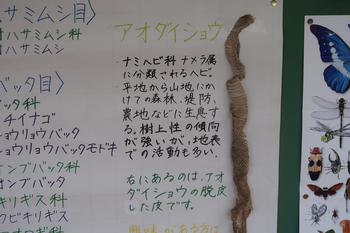 オハサミムシ目〉
オハサミムシ科
オハサミムシ
バッタ目〉
バッタ科
チイナゴ
ショウリョウバッタ
ショウリョウバッタモドキ
オンブバッタ科
オンブバッタ
キリギス科
クビキリギス
オロギ科
アオダイショウ
・ナミヘビ科 ナメラ属
に分類されるヘビ。
平地から山地にか
けての森林、堤防、
農地などに生息す
る。樹上性の傾向
が強いが、地表
での活動も多い。
右にあるのは、アオ
ダイショウの脱皮
した皮です。
興味がある方は